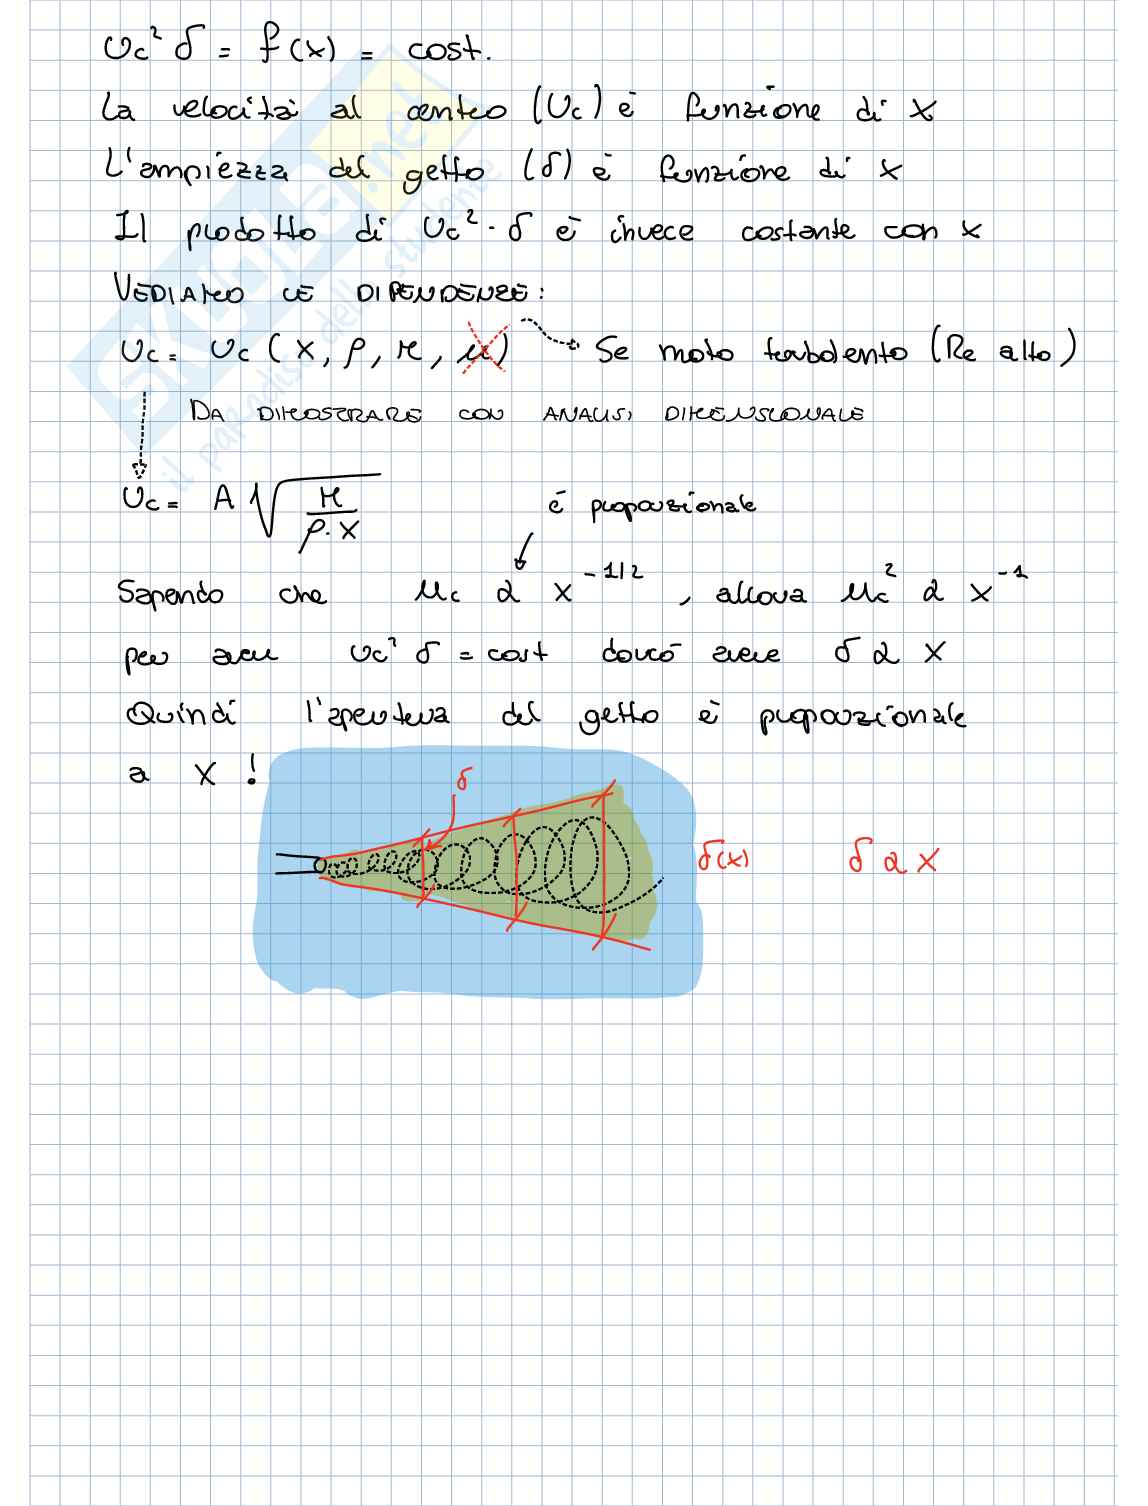 Uc² δ = f(x) = cost.
La velocità al centro (Uc) è funzione di x
L'ampiezza del getto (δ) è funzione di x
Il prodotto di Uc² · δ è invece costante con x
VEDIAMO LE DIPENDENZE:
Uc = Uc (x, ρ, M, μ) Se moto turbolento (Re alto)
DA DIMOSTRARE CON ANALISI DIMENSIONALE
Uc = A √(M / ρ·x)
è proporzionale
Sapendo che Uc α x^-1/2, allora Uc² α x^-1
per avere Uc² δ = cost dovrò avere δ α x
Quindi l'apertura del getto è proporzionale
a x !
δ
δ(x) δ α x
SKUOLA.net
il paradiso dello studente